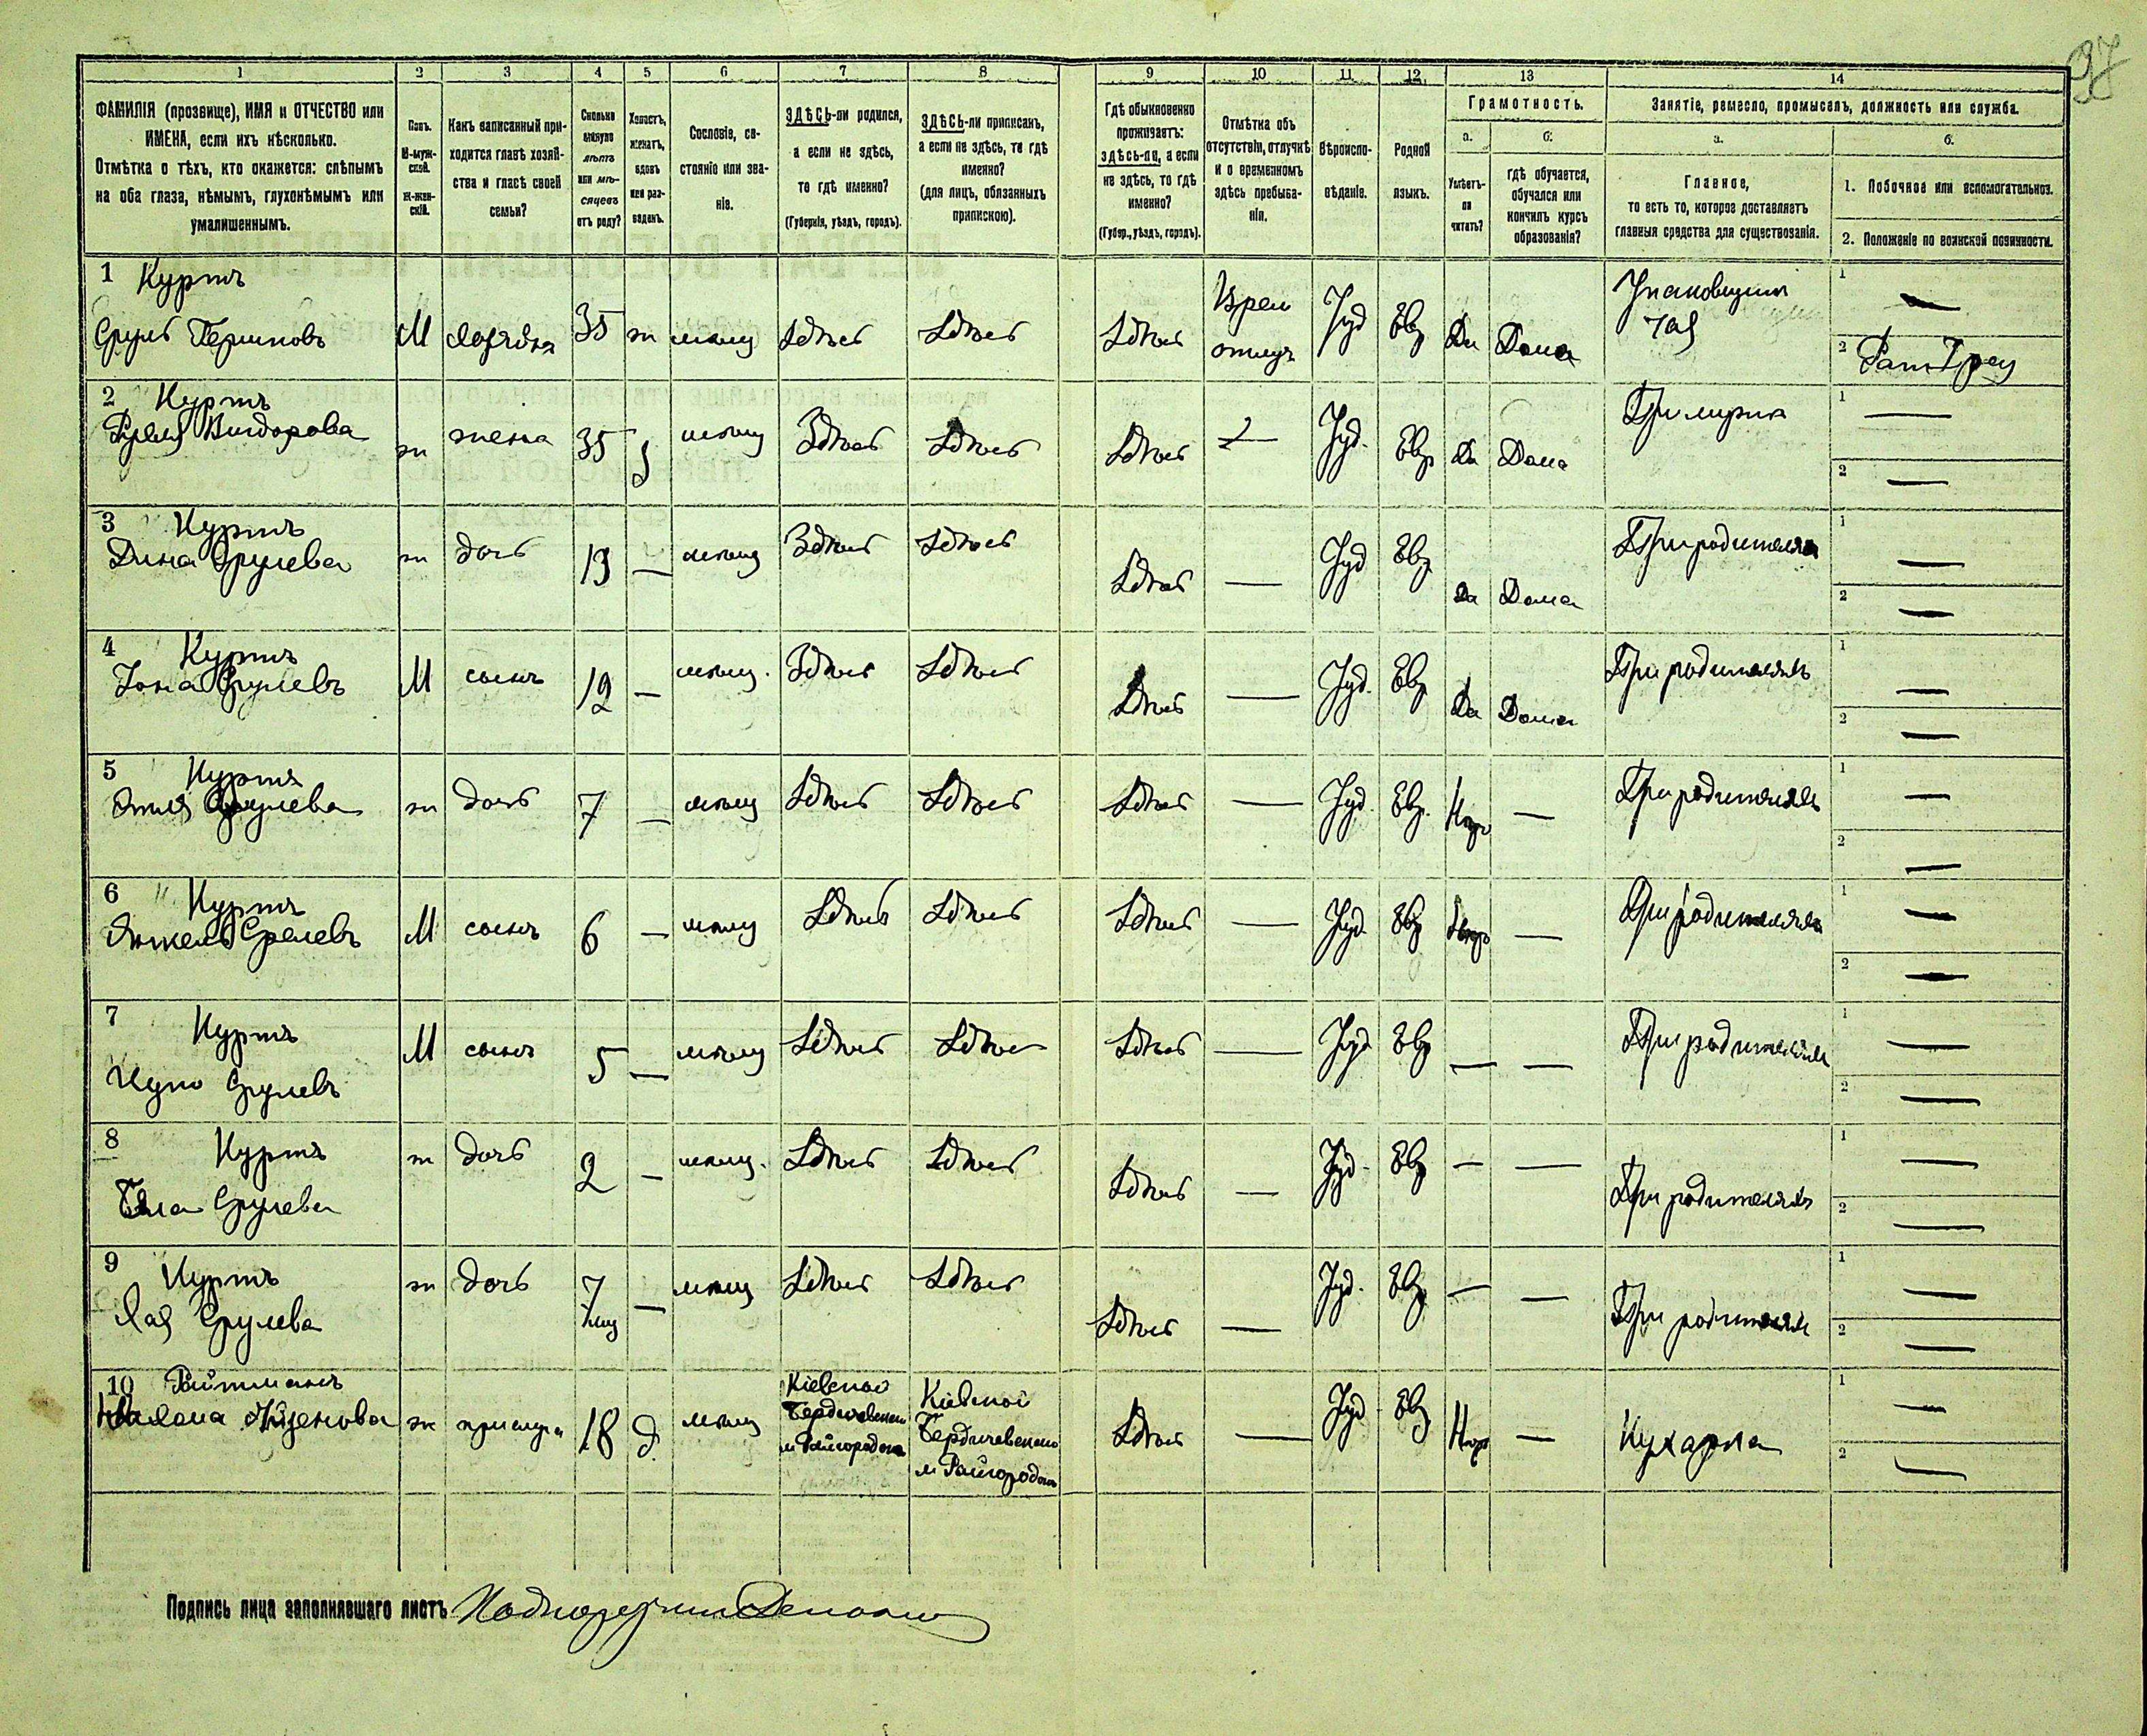 97
1 2 3 4 5 6 7 8 9 10 11 12 13 14
ФАМИЛІЯ (прозвище), ИМЯ и ОТЧЕСТВО или
ИМЕНА, если ихъ нѣсколько.
Отмѣтка о тѣхъ, кто окажется: слѣпымъ
на оба глаза, нѣмымъ, глухонѣмымъ или
умалишеннымъ.
Полъ.
М-муж-
ской.
Ж-жен-
скій.
Какъ записанный при-
ходится главѣ хозяй-
ства и главѣ своей
семьи?
Сколько
минуло
лѣтъ
или мѣ-
сяцевъ
отъ роду?
Холостъ,
женатъ,
вдовъ
или раз-
веденъ.
Сословіе, со-
стояніе или зва-
ніе.
ЗДѢСЬ-ли родился,
а если не здѣсь,
то гдѣ именно?
(Губернія, уѣздъ, городъ).
ЗДѢСЬ-ли приписанъ,
а если не здѣсь, то гдѣ
именно?
(для лицъ, обязанныхъ
припискою).
Гдѣ обыкновенно
проживаетъ:
здѣсь-ли, а если
не здѣсь, то гдѣ
именно?
(Губер., уѣздъ, городъ).
Отмѣтка объ
отсутствіи, отлучкѣ
и о временномъ
здѣсь пребыва-
ніи.
Вѣроиспо-
вѣданіе.
Родной
языкъ.
Грамотность.
а.
Умѣетъ-
ли
читать?
б.
гдѣ обучается,
обучался или
кончилъ курсъ
образованія?
Занятіе, ремесло, промыселъ, должность или служба.
а.
Главное,
то есть то, которое доставляетъ
главныя средства для существованія.
б.
1. Побочное или вспомогательное.
2. Положеніе по воинской повинности.
1 Куртъ
Сруль Першковъ М хозяинъ 35 ж мѣщ Здѣсь Здѣсь Здѣсь Врем отлуч Іуд Евр Да Дома Упаковщикъ чая 1 — 2 Рат
2 Куртъ
ж жена 35 з мѣщ Здѣсь Здѣсь Здѣсь — Іуд. Евр Да Дома При мужѣ 1 — 2 —
3 Куртъ
Дина Срулева ж дочь 13 — мѣщ Здѣсь Здѣсь Здѣсь — Іуд Евр Да Дома При родителяхъ 1 — 2 —
4 Куртъ
Іона Срулевъ М сынъ 12 — мѣщ. Здѣсь Здѣсь Здѣсь — Іуд. Евр Да Дома При родителяхъ 1 — 2 —
5 Куртъ
Срулева ж дочь 7 — мѣщ Здѣсь Здѣсь Здѣсь — Іуд. Евр. — При родителяхъ 1 — 2 —
6 Куртъ
Янкель Срулевъ М сынъ 6 — мѣщ Здѣсь Здѣсь Здѣсь — Іуд. Евр — При родителяхъ 1 — 2 —
7 Куртъ
Срулевъ М сынъ 5 — мѣщ Здѣсь Здѣсь Здѣсь — Іуд Евр — — При родителяхъ 1 — 2 —
8 Куртъ
Срулева ж дочь 2 — мѣщ. Здѣсь Здѣсь Здѣсь — Іуд. Евр — — При родителяхъ 1 — 2 —
9 Куртъ
Хая Срулева ж дочь 7 мц — мѣщ Здѣсь Здѣсь Здѣсь — Іуд. Евр — — При родителяхъ 1 — 2 —
10 Ройтманъ
ж прислуга 18 д. мѣщ Кіевской Бердичевскаго м Райгородка Кіевской Бердичевскаго м Райгородка Здѣсь — Іуд. Евр — Кухарка 1 — 2 —
Подпись лица заполнявшаго листъ